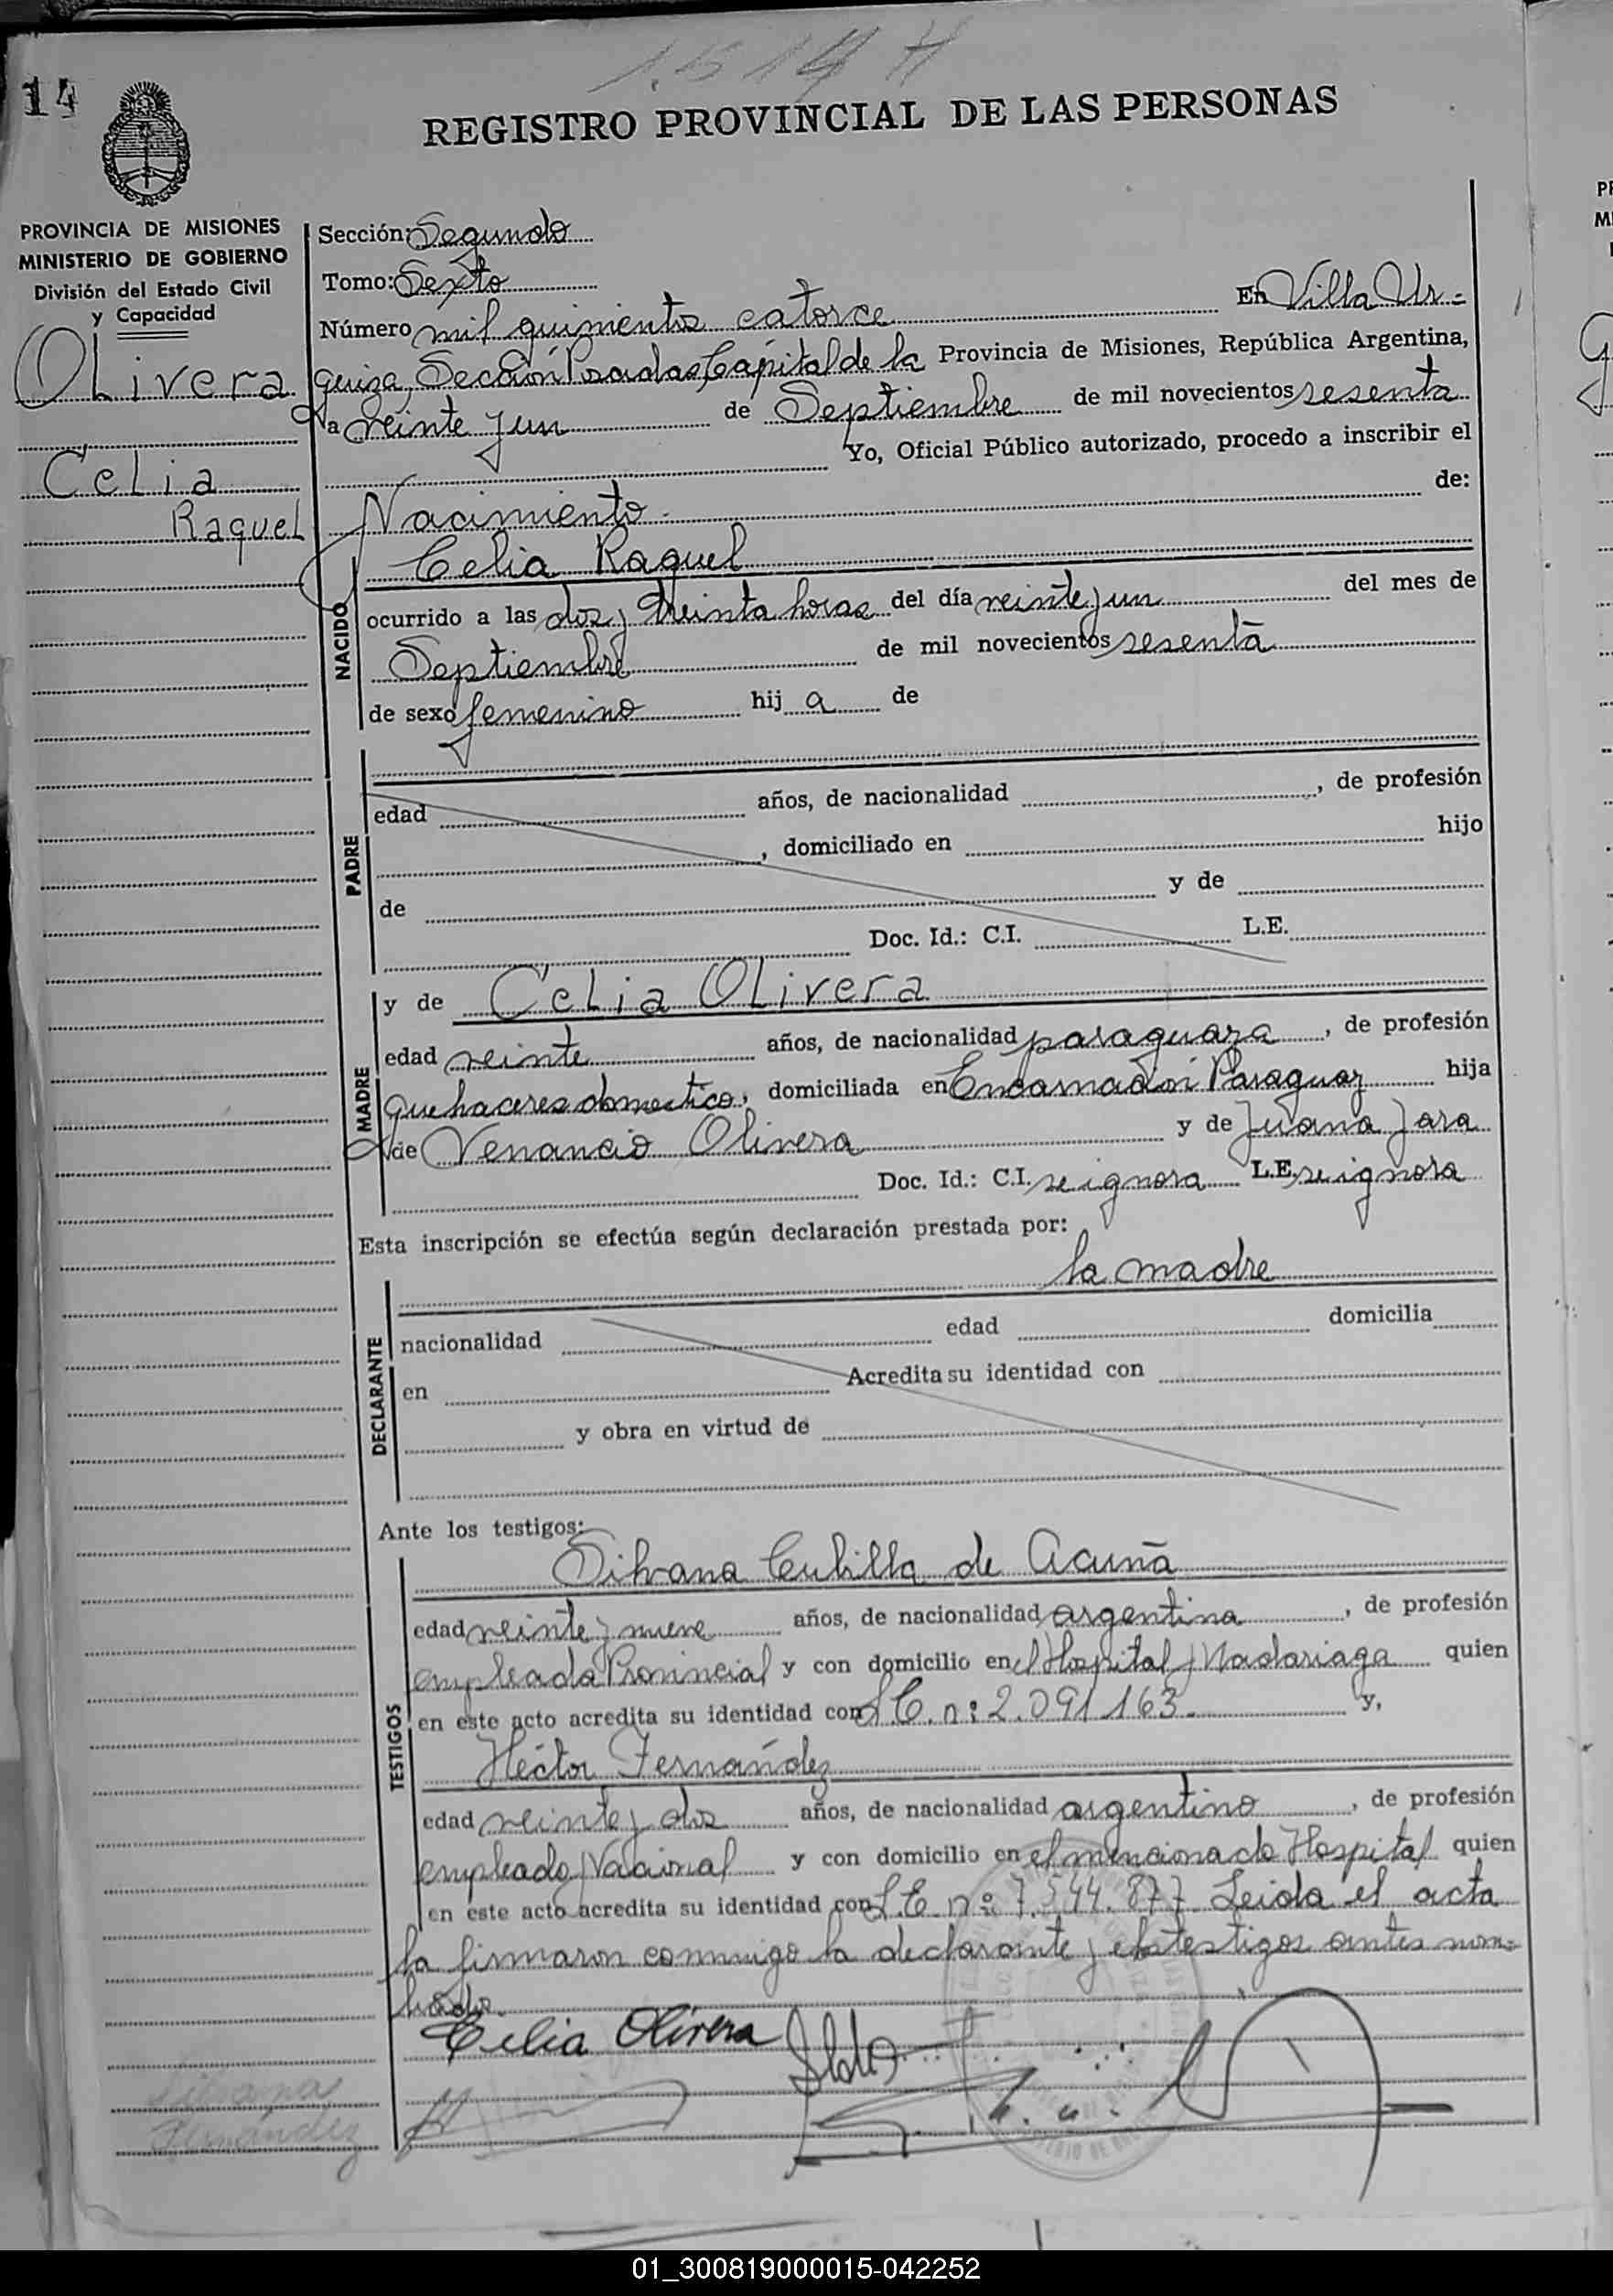 1.514 H
14
REGISTRO PROVINCIAL DE LAS PERSONAS
PROVINCIA DE MISIONES
MINISTERIO DE GOBIERNO
División del Estado Civil
y Capacidad
Olivera
Celia
Raquel
Sección: Segundo
Tomo: Sexto
Número mil quinientos catorce En Villa Ur=
quiza, Sección Posadas, Capital de la Provincia de Misiones, República Argentina,
a veinte y un de Septiembre de mil novecientos sesenta
Yo, Oficial Público autorizado, procedo a inscribir el
Nacimiento de:
NACIDO
Celia Raquel
ocurrido a las dos y treinta horas del día veinte y un del mes de
Septiembre de mil novecientos sesenta
de sexo femenino hij a de
PADRE
edad años, de nacionalidad , de profesión
, domiciliado en hijo
de y de
Doc. Id.: C.I. L.E.
MADRE
y de Celia Olivera
edad veinte años, de nacionalidad paraguaya, de profesión
quehaceres domestico, domiciliada en Encarnación Paraguay hija
de Venancio Olivera y de Juana Jara
Doc. Id.: C.I. se ignora L.E. se ignora
Esta inscripción se efectúa según declaración prestada por:
la madre
DECLARANTE
nacionalidad edad domicilia
en Acredita su identidad con
y obra en virtud de
Ante los testigos:
TESTIGOS
Silvana Cubilla de Acuña
edad veinte y nueve años, de nacionalidad argentina, de profesión
empleada Provincial y con domicilio en el Hospital Madariaga quien
en este acto acredita su identidad con L.C. n: 2.091163. y,
Héctor Fernández
edad veinte y dos años, de nacionalidad argentino, de profesión
empleado Nacional y con domicilio en el mencionado Hospital quien
en este acto acredita su identidad con L.E. n: 7.544.877 Leida el acta
la firmaron conmigo la declarante y los testigos antes nom=
brados.
Celia Olivera
Silvana
Fernández
01_300819000015-042252